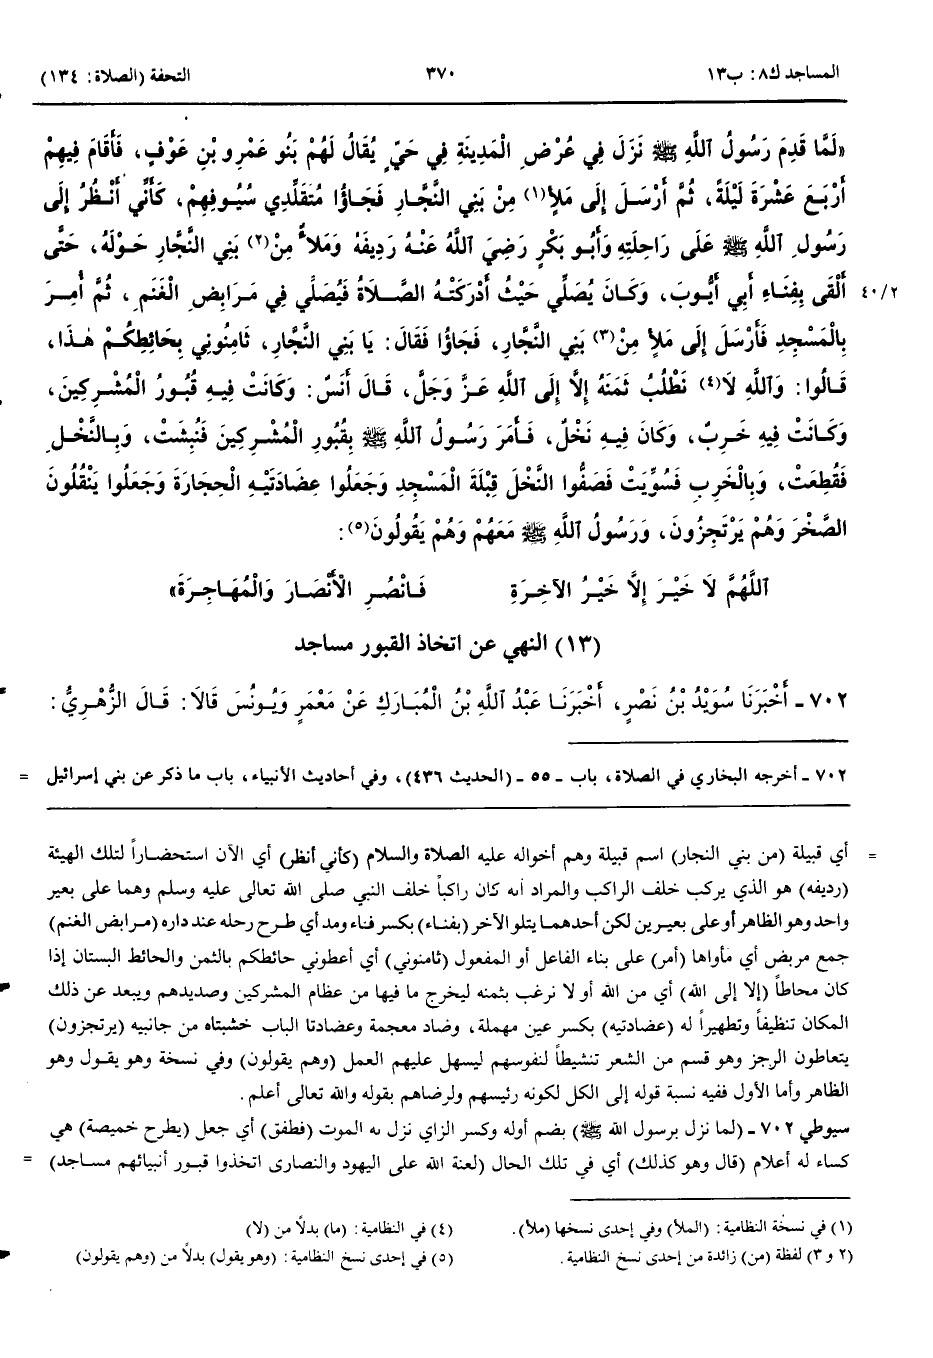 المساجد ك٨: ب١٣ ٣٧٠ التحفة (الصلاة: ١٣٤)
«لَمَّا قَدِمَ رَسُولُ اللَّهِ ﷺ نَزَلَ فِي عُرْضِ الْمَدِينَةِ فِي حَيٍّ يُقَالُ لَهُمْ بَنُو عَمْرِو بْنِ عَوْفٍ، فَأَقَامَ فِيهِمْ
أَرْبَعَ عَشْرَةَ لَيْلَةً، ثُمَّ أَرْسَلَ إِلَى مَلأٍ(١) مِنْ بَنِي النَّجَّارِ فَجَاؤُا مُتَقَلِّدِي سُيُوفِهِمْ، كَأَنِّي أَنْظُرُ إِلَى
رَسُولِ اللَّهِ ﷺ عَلَى رَاحِلَتِهِ وَأَبُو بَكْرٍ رَضِيَ اللَّهُ عَنْهُ رَدِيفَهُ وَمَلأٌ مِنْ(٢) بَنِي النَّجَّارِ حَوْلَهُ، حَتَّى
٤٠/٢ أَلْقَى بِفِنَاءِ أَبِي أَيُّوبَ، وَكَانَ يُصَلِّي حَيْثُ أَدْرَكَتْهُ الصَّلاَةُ فَيُصَلِّي فِي مَرَابِضِ الْغَنَمِ، ثُمَّ أُمِرَ
بِالْمَسْجِدِ فَأَرْسَلَ إِلَى مَلأٍ مِنْ(٣) بَنِي النَّجَّارِ، فَجَاؤُا فَقَالَ: يَا بَنِي النَّجَّارِ، ثَامِنُونِي بِحَائِطِكُمْ هٰذَا،
قَالُوا: وَاللَّهِ لاَ(٤) نَطْلُبُ ثَمَنَهُ إِلَّا إِلَى اللَّهِ عَزَّ وَجَلَّ، قَالَ أَنَسٌ: وَكَانَتْ فِيهِ قُبُورُ الْمُشْرِكِينَ،
وَكَانَتْ فِيهِ خَرِبٌ، وَكَانَ فِيهِ نَخْلٌ، فَأَمَرَ رَسُولُ اللَّهِ ﷺ بِقُبُورِ الْمُشْرِكِينَ فَنُبِشَتْ، وَبِالنَّخْلِ
فَقُطِعَتْ، وَبِالْخَرِبِ فَسُوِّيَتْ فَصَفُّوا النَّخْلَ قِبْلَةَ الْمَسْجِدِ وَجَعَلُوا عِضَادَتَيْهِ الْحِجَارَةَ وَجَعَلُوا يَنْقُلُونَ
الصَّخْرَ وَهُمْ يَرْتَجِزُونَ، وَرَسُولُ اللَّهِ ﷺ مَعَهُمْ وَهُمْ يَقُولُونَ(٥):
اَللَّهُمَّ لَا خَيْرَ إِلَّا خَيْرُ الآخِرَةِ فَانْصُرِ الْأَنْصَارَ وَالْمُهَاجِرَةَ»
(١٣) النهي عن اتخاذ القبور مساجد
٧٠٢ ـ أَخْبَرَنَا سُوَيْدُ بْنُ نَصْرٍ، أَخْبَرَنَا عَبْدُ اللَّهِ بْنُ الْمُبَارَكِ عَنْ مَعْمَرٍ وَيُونُسَ قَالَا: قَالَ الزُّهْرِيُّ:
٧٠٢ ـ أخرجه البخاري في الصلاة، باب ـ ٥٥ ـ (الحديث ٤٣٦)، وفي أحاديث الأنبياء، باب ما ذكر عن بني إسرائيل =
= أي قبيلة (من بني النجار) اسم قبيلة وهم أخواله عليه الصلاة والسلام (كأني أنظر) أي الآن استحضاراً لتلك الهيئة
(رديفه) هو الذي يركب خلف الراكب والمراد أنه كان راكباً خلف النبي صلى الله تعالى عليه وسلم وهما على بعير
واحد وهو الظاهر أو على بعيرين لكن أحدهما يتلو الآخر (بفناء) بكسر فناء ومد أي طرح رحله عند داره (مرابض الغنم)
جمع مربض أي مأواها (أمر) على بناء الفاعل أو المفعول (ثامنوني) أي أعطوني حائطكم بالثمن والحائط البستان إذا
كان محاطاً (إلا إلى الله) أي من الله أو لا نرغب بثمنه ليخرج ما فيها من عظام المشركين وصديدهم ويبعد عن ذلك
المكان تنظيفاً وتطهيراً له (عضادتيه) بكسر عين مهملة، وضاد معجمة وعضادتا الباب خشبتاه من جانبيه (يرتجزون)
يتعاطون الرجز وهو قسم من الشعر تنشيطاً لنفوسهم ليسهل عليهم العمل (وهم يقولون) وفي نسخة وهو يقول وهو
الظاهر وأما الأول ففيه نسبة قوله إلى الكل لكونه رئيسهم ولرضاهم بقوله والله تعالى أعلم.
سيوطي ٧٠٢ ـ (لما نزل برسول الله ﷺ) بضم أوله وكسر الزاي نزل به الموت (فطفق) أي جعل (يطرح خميصة) هي
كساء له أعلام (قال وهو كذلك) أي في تلك الحال (لعنة الله على اليهود والنصارى اتخذوا قبور أنبيائهم مساجد) =
(١) في نسخة النظامية: (الملأ) وفي إحدى نسخها (ملأ). (٤) في النظامية: (ما) بدلاً من (لا)
(٢ و ٣) لفظة (من) زائدة من إحدى نسخ النظامية. (٥) في إحدى نسخ النظامية: (وهو يقول) بدلاً من (وهم يقولون)